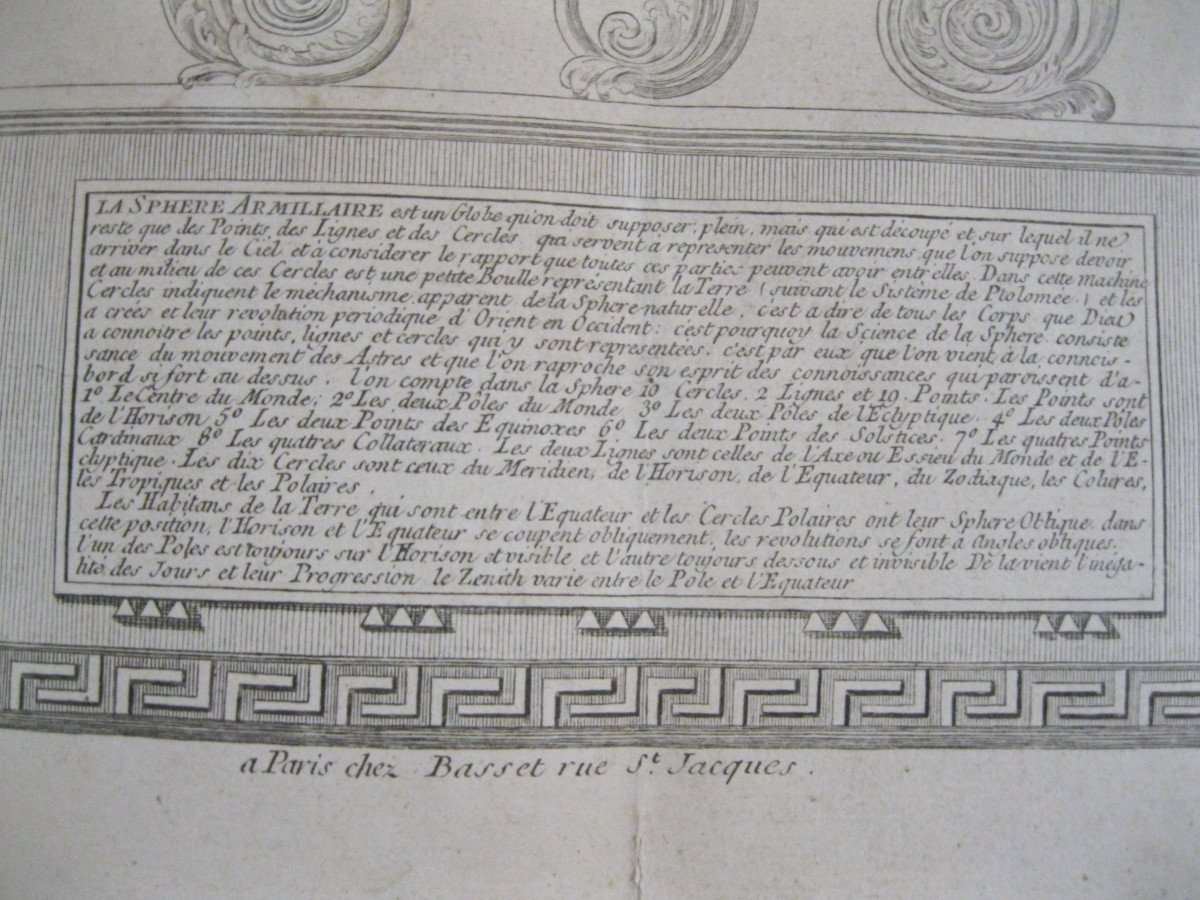 LA SPHERE ARMILLAIRE est un Globe qu'on doit supposer plein, mais qui est découpé et sur lequel il ne
reste que des Points des Lignes et des Cercles qui servent a representer les mouvemens que l'on suppose devoir
arriver dans le Ciél et à considerer le rapport que toutes ces parties peuvent avoir entr'elles. Dans cette machine
et au milieu de ces Cercles est une petite Boulle representant la Terre (suivant le Sistême de Ptolomée.) et les
Cercles indiquent le méchanisme apparent de la Sphere naturelle, c'est a dire de tous les Corps que Dieu
a crées et leur revolution periodique d'Orient en Occident: c'est pourquoy la Science de la Sphere consiste
a connoitre les points, lignes et cercles qui y sont representées. c'est par eux que l'on vient à la connois-
sance du mouvement des Astres et que l'on raproche son esprit des connoissances qui paroissent d'a-
bord si fort au dessus. l'on compte dans la Sphere 10 Cercles. 2 Lignes et 19. Points. Les Points sont
1º Le Centre du Monde, 2º Les deux Pôles du Monde 3º Les deux Pôles de l'Eclyptique. 4º Les deux Pôles
de l'Horison 5º Les deux Points des Equinoxes 6º Les deux Points des Solstices. 7º Les quatres Points
Cardinaux 8º Les quatres Collateraux. Les deux Lignes sont celles de l'Axe ou Essieu du Monde et de l'E-
clyptique. Les dix Cercles sont ceux du Meridien, de l'Horison, de l'Equateur, du Zodiaque, les Colures,
les Tropiques et les Polaires.
Les Habitans de la Terre qui sont entre l'Equateur et les Cercles Polaires ont leur Sphere Oblique. dans
cette position, l'Horison et l'Equateur se coupent obliquement, les revolutions se font à Angles obliques.
l'un des Poles est toujours sur l'Horison et visible et l'autre toujours dessous et invisible De la vient l'inéga-
lité des Jours et leur Progression le Zenith varie entre le Pôle et l'Equateur
a Paris chez Basset rue St. Jacques.